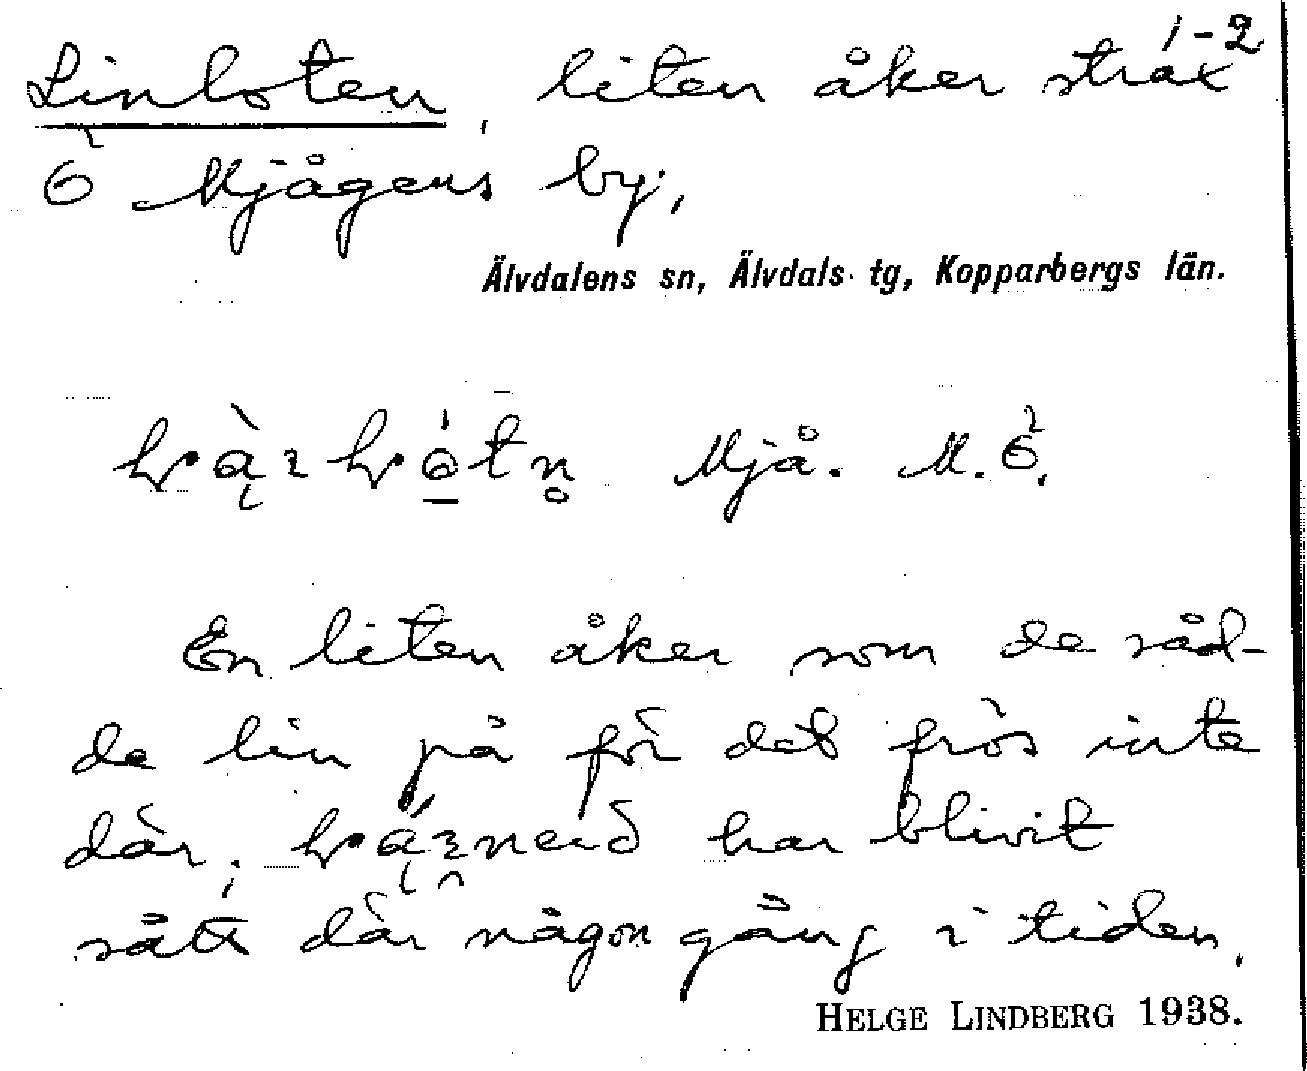 1-2
Linloten, liten åker strax
Ö Mjågens by,
Älvdalens sn, Älvdals tg, Kopparbergs län.
Mjå. M.Ö.
En liten åker som de såd-
de lin på för det frös inte
där. har blivit
sått där någon gång i tiden.
HELGE LINDBERG 1938.